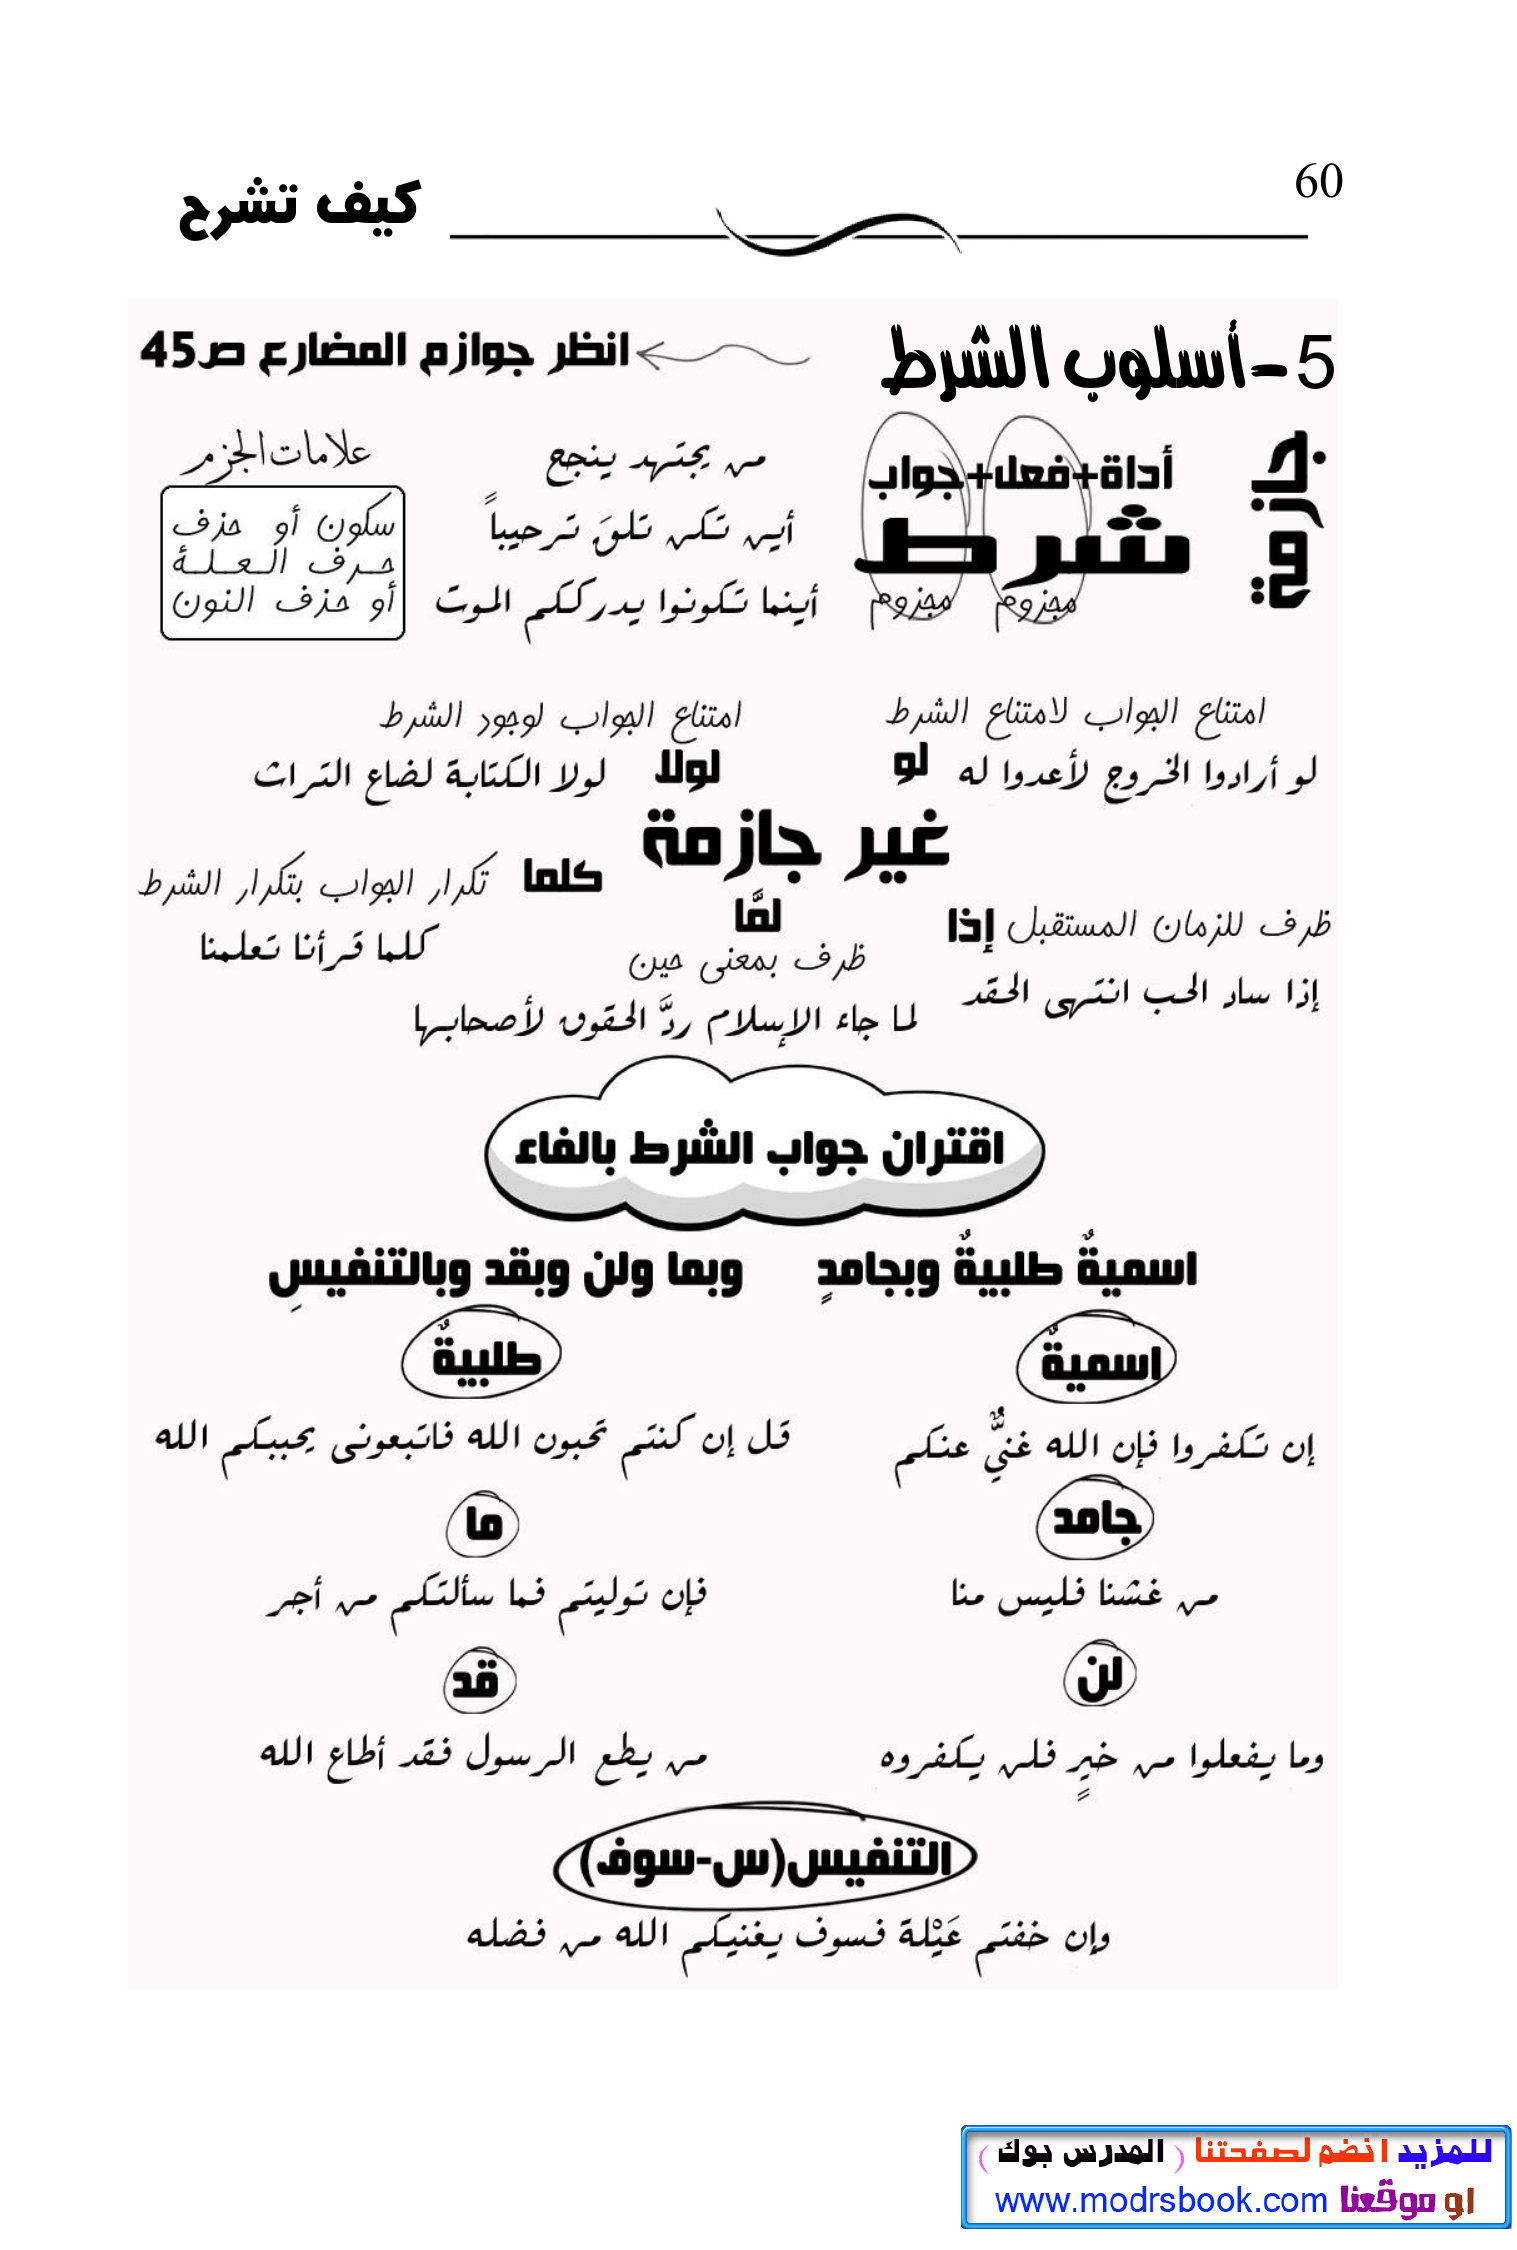 60
كيف تشرح
5-أسلوب الشرط
انظر جوازم المضارع ص45
جازم
أداة+فعل+جواب
شرط
مجزوم مجزوم
من يجتهد ينجح
أين تكن تلقَ ترحيباً
أينما تكونوا يدرككم الموت
علامات الجزم
سكون أو حذف
حرف العلة
أو حذف النون
امتناع الجواب لامتناع الشرط
لو
لو أرادوا الخروج لأعدوا له
امتناع الجواب لوجود الشرط
لولا
لولا الكتابة لضاع التراث
غير جازمة
كلما تكرار الجواب بتكرار الشرط
كلما قرأنا تعلمنا
لمَّا
ظرف بمعنى حين
لما جاء الإسلام ردَّ الحقوق لأصحابها
إذا ظرف للزمان المستقبل
إذا ساد الحب انتهى الحقد
اقتران جواب الشرط بالفاء
اسميةٌ طلبيةٌ وبجامدٍ وبما ولن وبقد وبالتنفيسِ
اسميةٌ
إن تكفروا فإن الله غنيٌّ عنكم
طلبيةٌ
قل إن كنتم تحبون الله فاتبعونى يحببكم الله
جامد
من غشنا فليس منا
ما
فإن توليتم فما سألتكم من أجر
لن
وما يفعلوا من خيرٍ فلن يكفروه
قد
من يطع الرسول فقد أطاع الله
التنفيس(س-سوف)
وإن خفتم عَيْلة فسوف يغنيكم الله من فضله
للمزيد انضم لصفحتنا ( المدرس بوك )
او موقعنا www.modrsbook.com